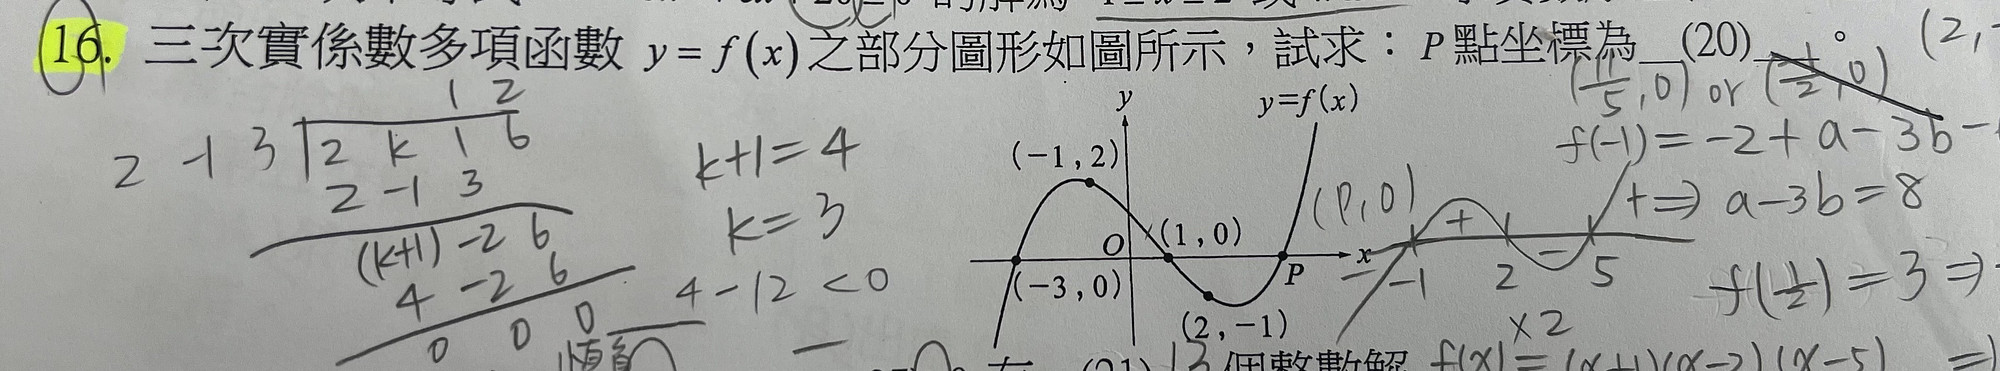 16. 三次實係數多項函數 y = f(x) 之部分圖形如圖所示，試求：P點坐標為 (20) 。 (2,
(11/5, 0) or (1/2, 0)
1 2
2 -1 3 2 k 1 6
2 -1 3
(k+1) -2 6
4 -2 6
0 0 0
k+1=4
k=3
4-12<0
y
y=f(x)
(-1, 2)
O
(1, 0)
(-3, 0)
P
x
(2, -1)
(P,0)
f(-1) = -2 + a - 3b -
+ ⇒ a-3b=8
+ -
- -1 2 5
f(1/2) = 3 ⇒
×2
(21) 13 個整數解 f(x) = (x+1)(x-2)(x-5) ⇒